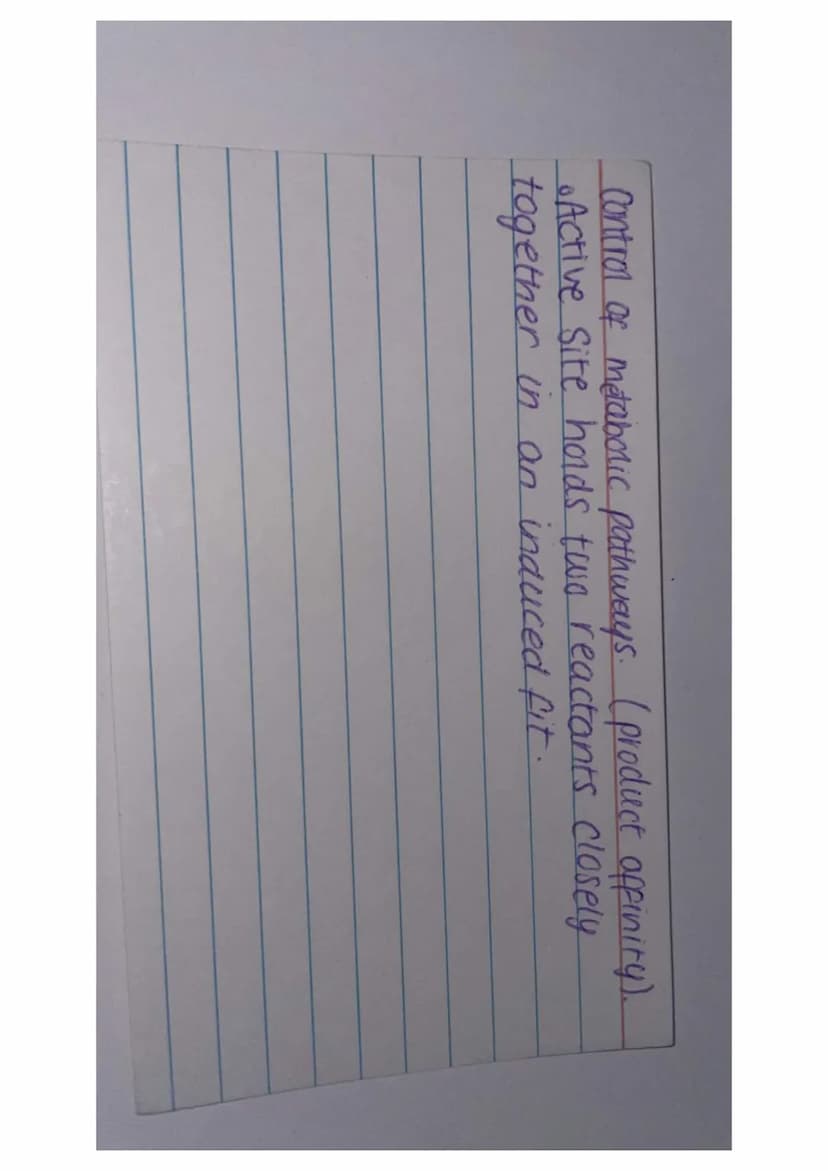 Control of metabolic pathways. (product affinity).
•Active site holds two reactants closely
together in an induced fit.